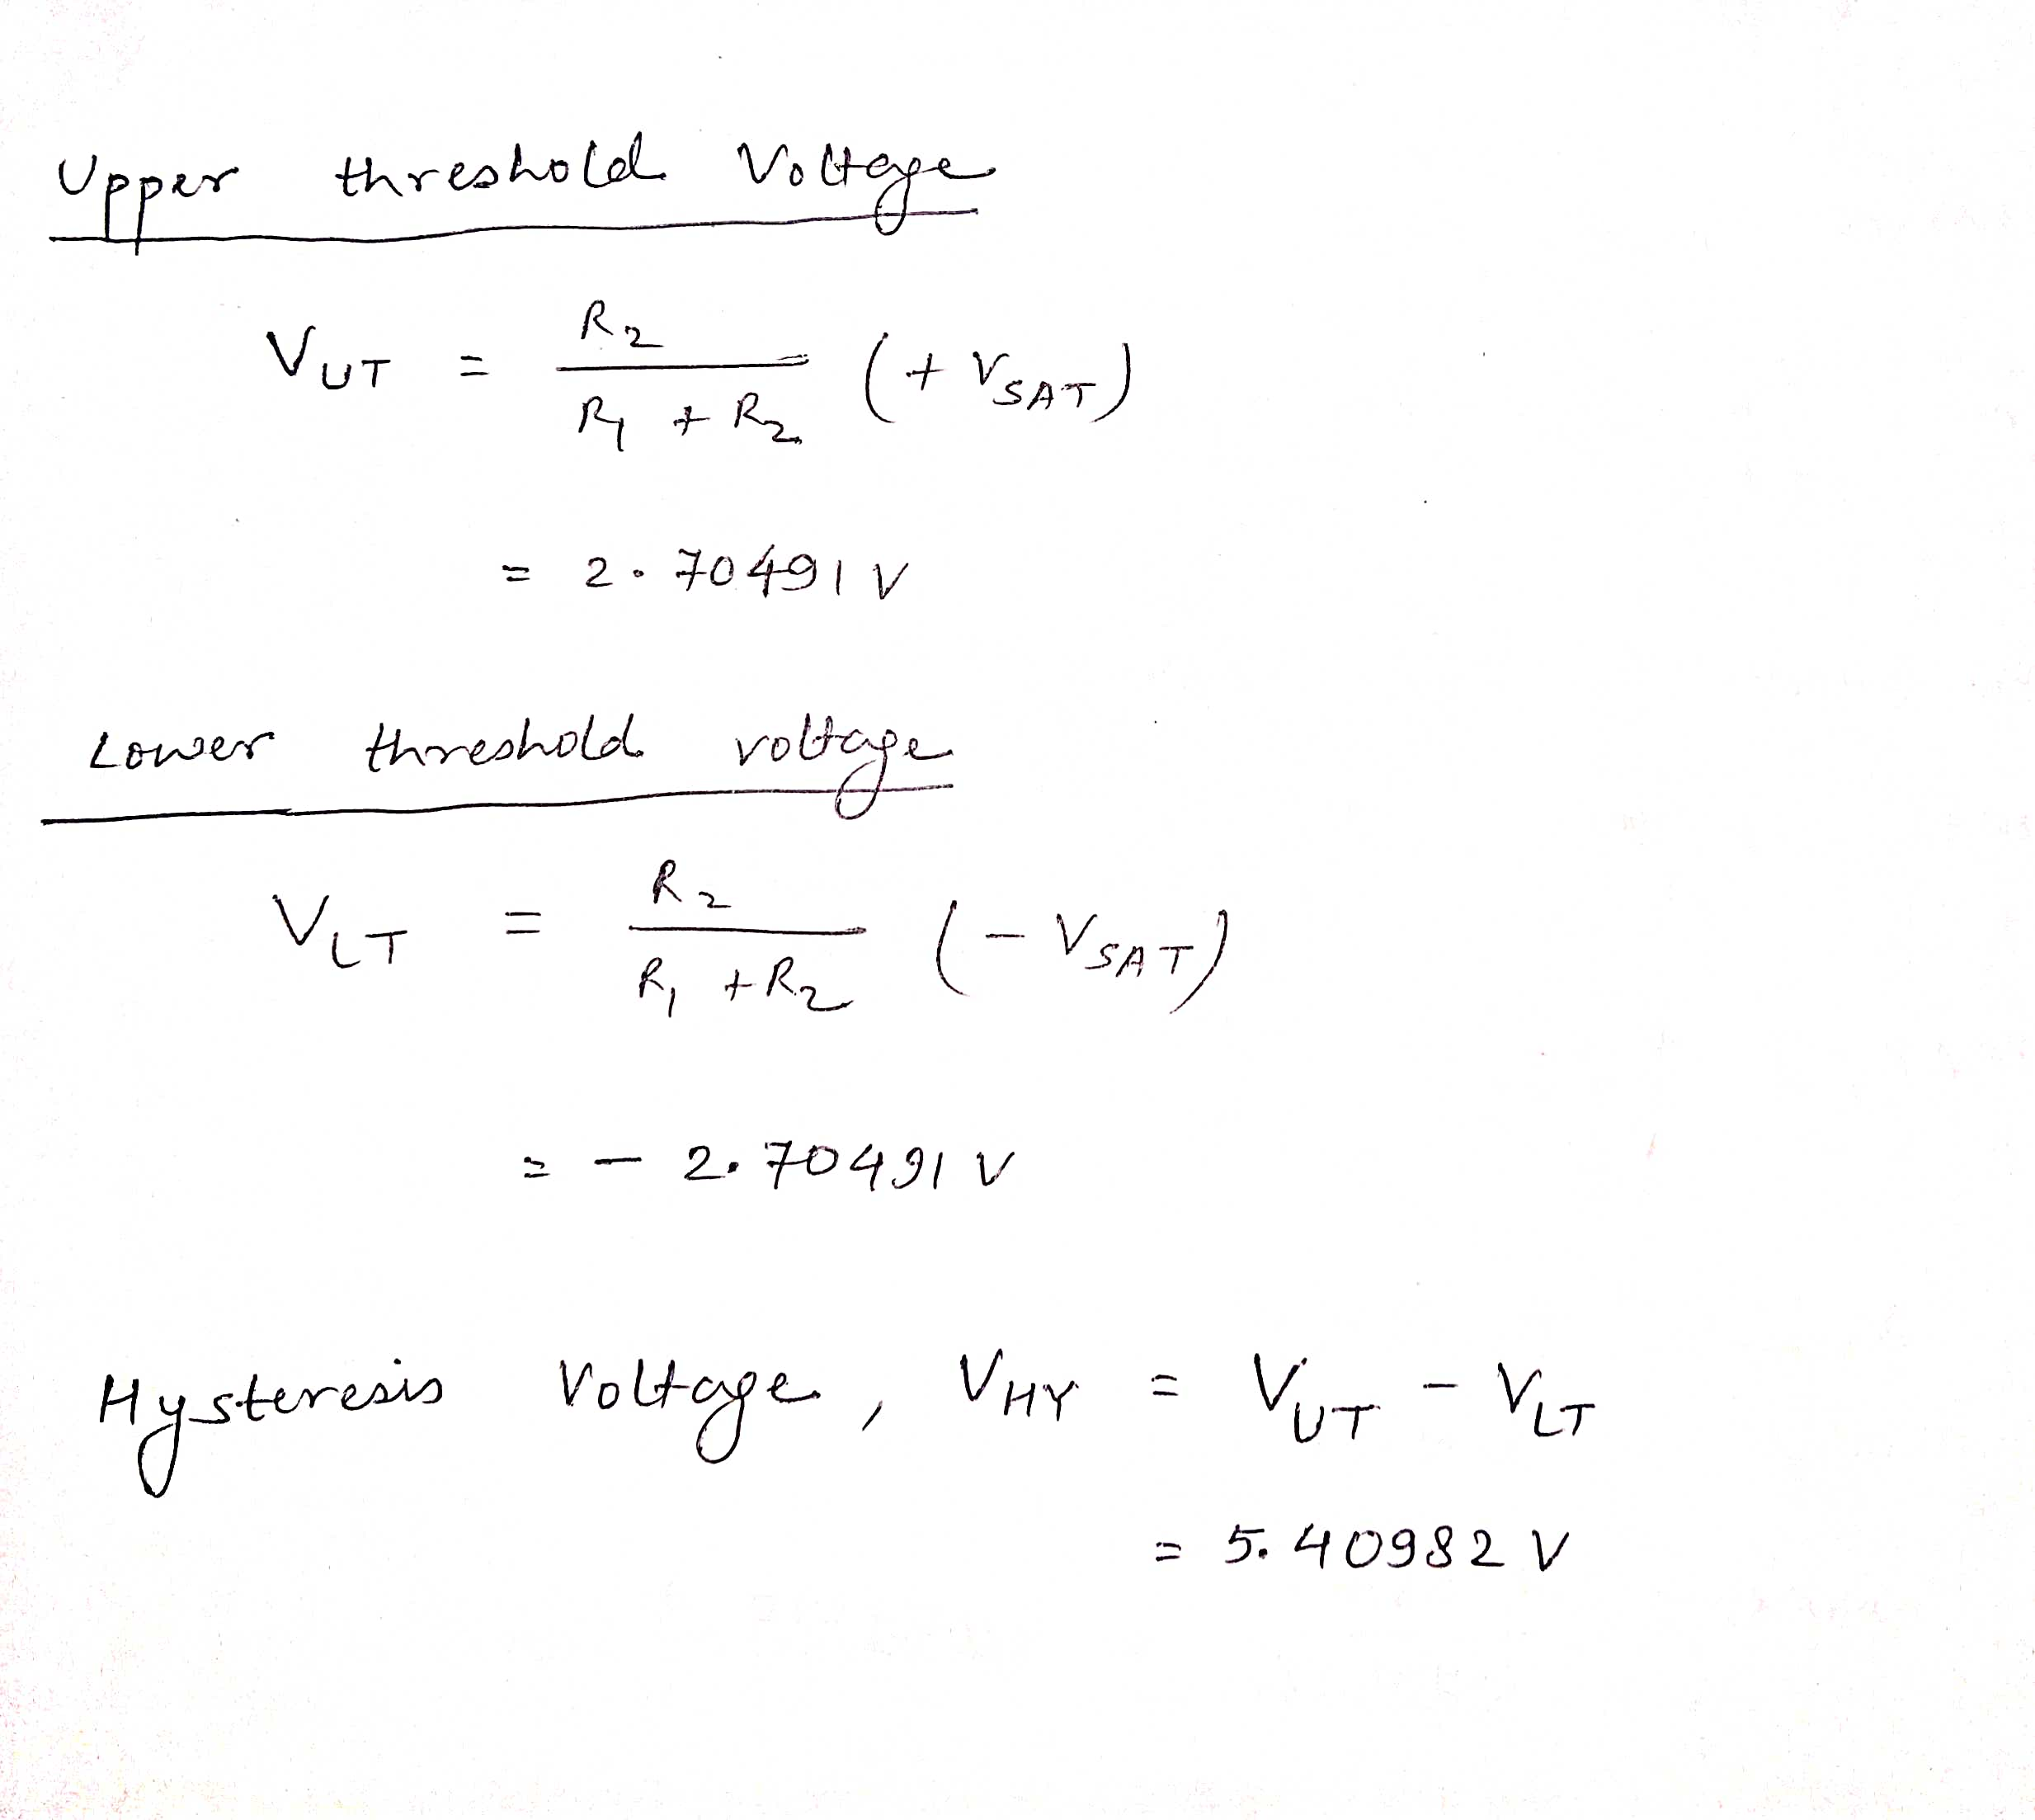 Upper threshold Voltage
V_UT = R_2 / (R_1 + R_2) (+ V_SAT)
= 2.70491 V
Lower threshold voltage
V_LT = R_2 / (R_1 + R_2) (- V_SAT)
= - 2.70491 V
Hysteresis Voltage, V_HY = V_UT - V_LT
= 5.40982 V